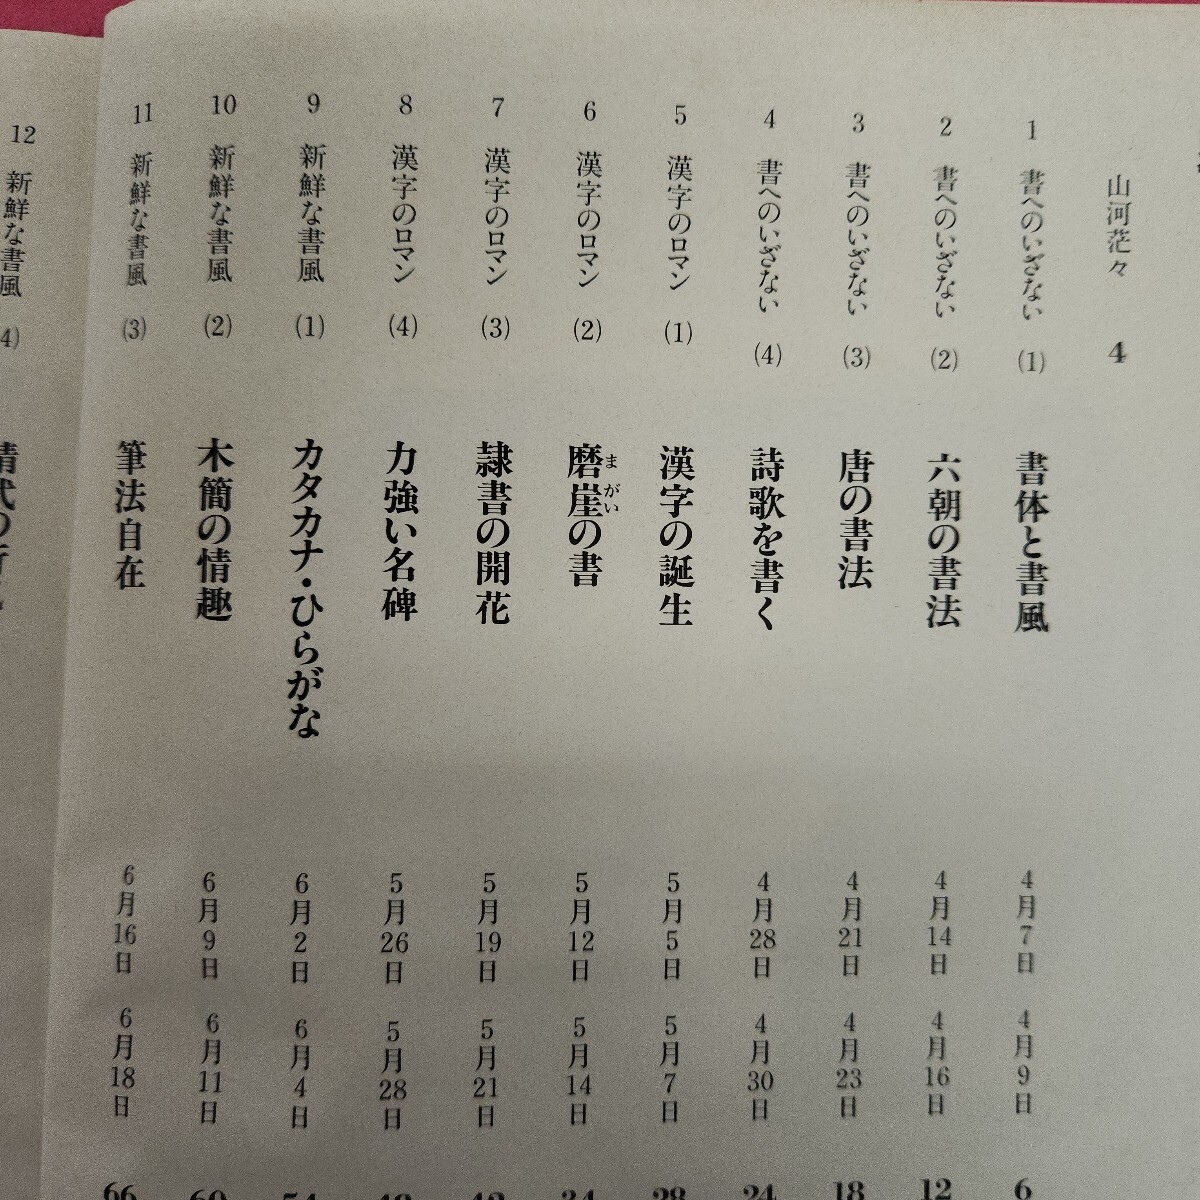 山河茫々 4
1 書へのいざない (1) 書体と書風 4月7日 4月9日 6
2 書へのいざない (2) 六朝の書法 4月14日 4月16日 12
3 書へのいざない (3) 唐の書法 4月21日 4月23日 18
4 書へのいざない (4) 詩歌を書く 4月28日 4月30日 24
5 漢字のロマン (1) 漢字の誕生 5月5日 5月7日 28
6 漢字のロマン (2) 磨崖の書 まがい 5月12日 5月14日 34
7 漢字のロマン (3) 隷書の開花 5月19日 5月21日 42
8 漢字のロマン (4) 力強い名碑 5月26日 5月28日 48
9 新鮮な書風 (1) カタカナ・ひらがな 6月2日 6月4日 54
10 新鮮な書風 (2) 木簡の情趣 6月9日 6月11日 60
11 新鮮な書風 (3) 筆法自在 6月16日 6月18日 66
12 新鮮な書風 (4) 清代の